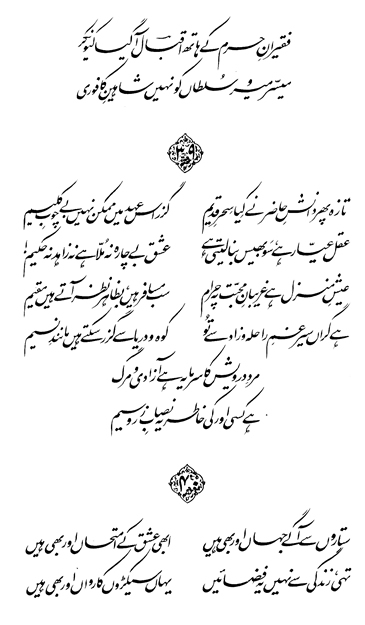 فقیرانِ حرم کے ہاتھ اقبالؔ آ گیا کیونکر
میسّر میر و سلطاں کو نہیں شاہینِ کافوری
۳۹
تازہ پھر دانشِ حاضر نے کیا سحرِ قدیم
گزر اس عہد میں ممکن نہیں بے چوبِ کلیم
عقل عیّار ہے، سو بھیس بنا لیتی ہے
عشق بے چارہ نہ مُلّا ہے نہ زاہد نہ حکیم!
عیشِ منزل ہے غریبانِ محبّت پہ حرام
سب مسافر ہیں، بظاہر نظر آتے ہیں مقیم
ہے گراں سیر غمِ راحلہ و زاد سے تُو
کوہ و دریا سے گزر سکتے ہیں مانندِ نسیم
مردِ درویش کا سرمایہ ہے آزادی و مرگ
ہے کسی اور کی خاطر یہ نصابِ زر و سیم
۴۰
ستاروں سے آگے جہاں اور بھی ہیں
ابھی عشق کے امتحاں اور بھی ہیں
تہی، زندگی سے نہیں یہ فضائیں
یہاں سیکڑوں کارواں اور بھی ہیں